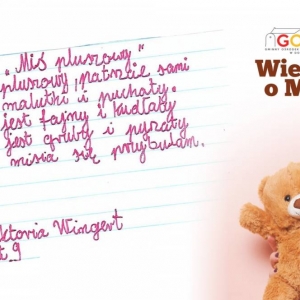 „Miś pluszowy"
pluszowy, patrzcie sami
malutki i puchaty.
jest fajny i kudłaty
jest gruby i pyzaty
misia się przytulam.
ktoria Wingert
t 9
GO
Wie
o M